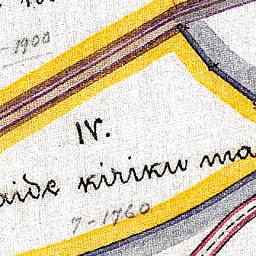 - 1900
IV.
aide kiriku ma
7 - 1760